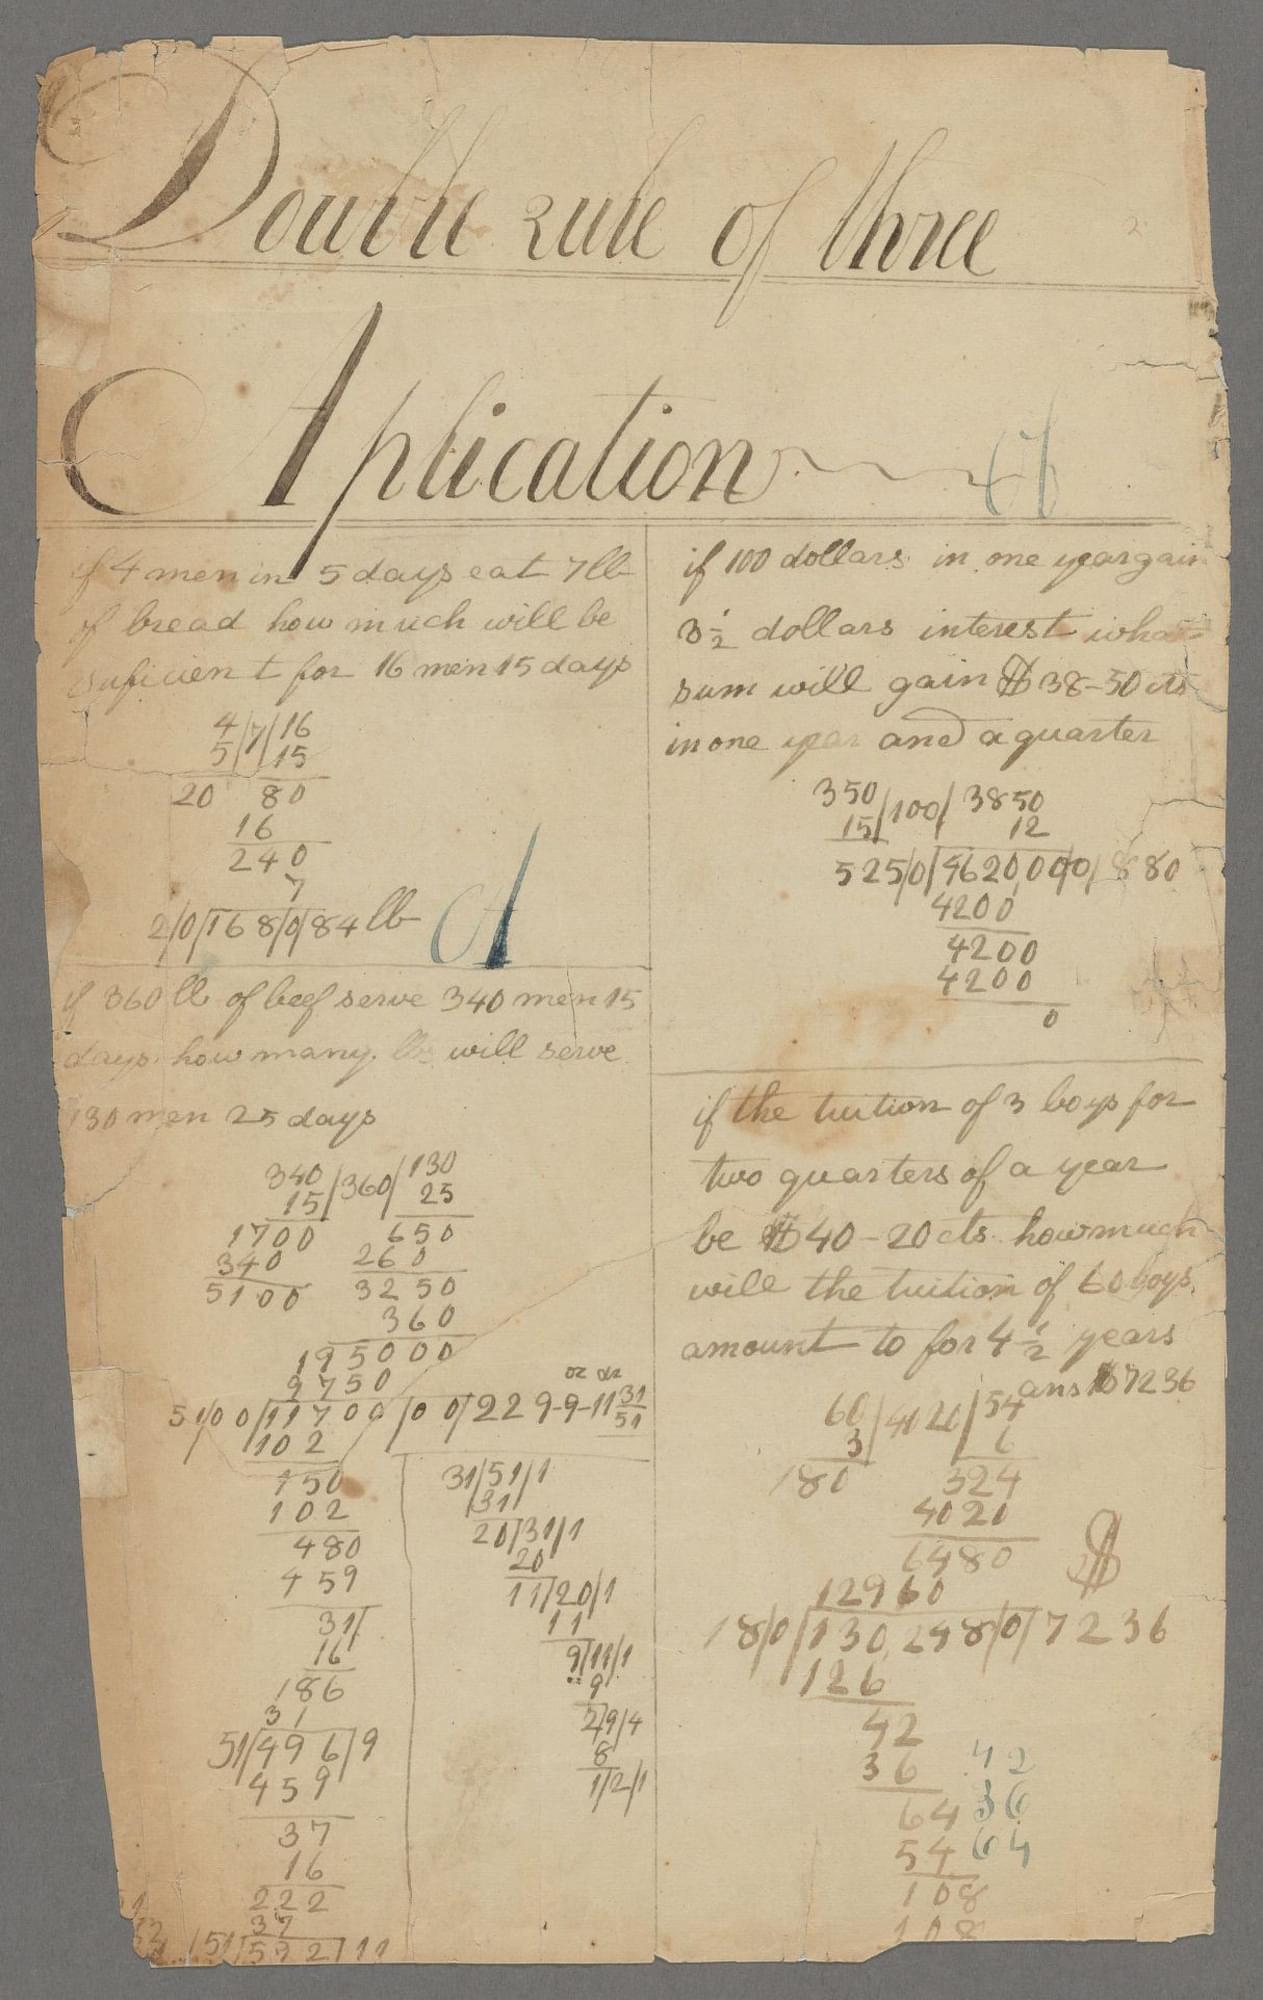 Double rule of three
Aplication
if 4 men in 5 days eat 7 lb
of bread how much will be
suficient for 16 men 15 days
4/7/16
5/ /15
20 80
16
240
7
2/0/168/0/84 lb
if 360 lb of beef serve 340 men 15
days how many lbs will serve
130 men 25 days
340/360/130
15 25
1700 650
340 260
5100 3250
360
195000
9750 oz dr
51/00/11700/00/229-9-11 31/51
102
150
102
480
459
31/
16
186
31
51/496/9
459
37
16
222
37
51/592/11
31/51/1
31
20/31/1
20
11/20/1
11
9/11/1
9
2/9/4
8
1/2/1
if 100 dollars in one year gain
3 1/2 dollars interest what
sum will gain $38-50 cts
in one year and a quarter
350/100/3850
15 12
525/0/4620,000/880
4200
4200
4200
0
if the tuition of 3 boys for
two quarters of a year
be $40-20 cts how much
will the tuition of 60 boys
amount to for 4 1/2 years
ans $7236
60/4020/54
3 6
180 324
4020
6480
12960 $
18/0/130,248/0/7236
126
42
36 42
64 36
54 64
108
108